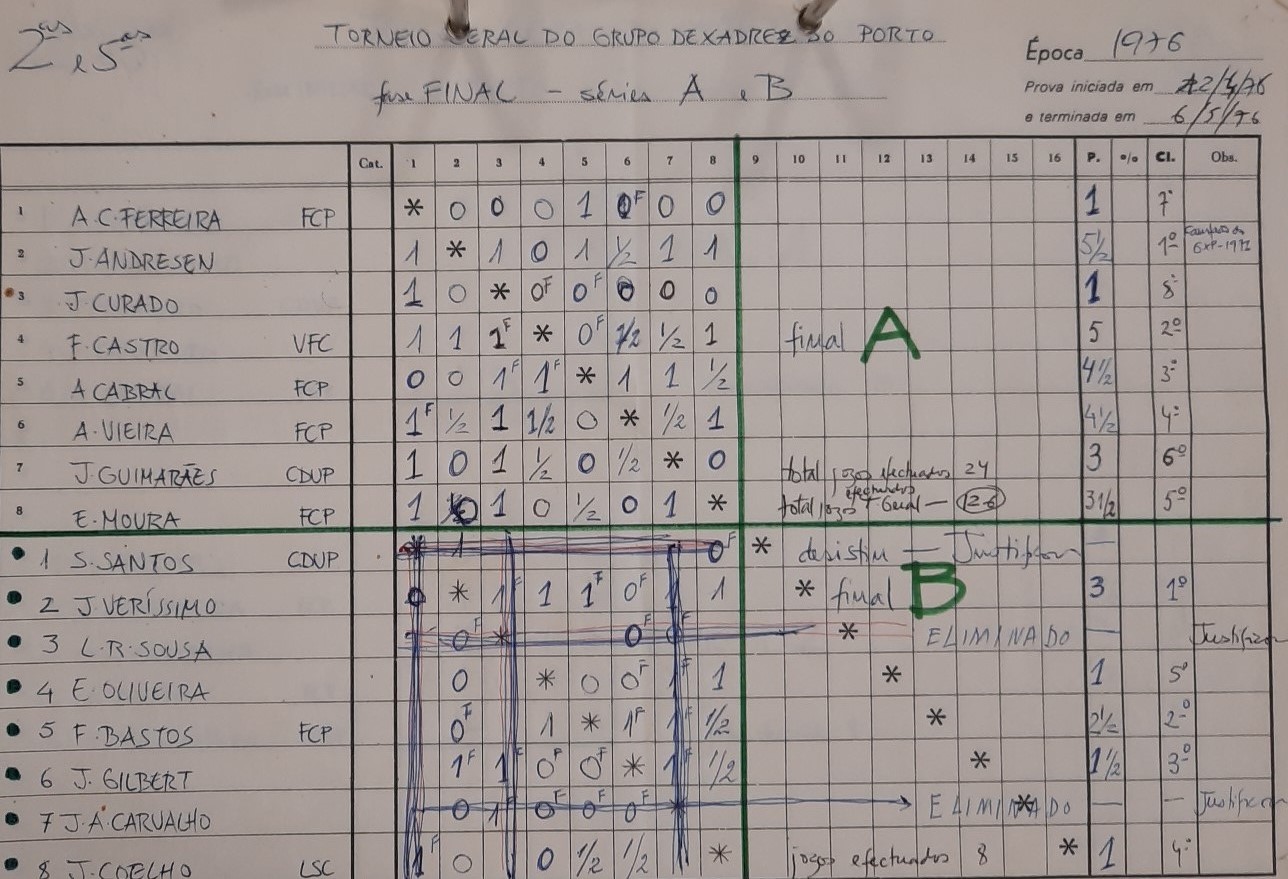 2ªs e 5ªs
TORNEIO GERAL DO GRUPO DE XADREZ DO PORTO
fase FINAL - séries A e B
Época 1976
Prova iniciada em 22/4/76
e terminada em 6/5/76
Cat. 1 2 3 4 5 6 7 8 9 10 11 12 13 14 15 16 P. º/o Cl. Obs.
1 A.C.FERREIRA FCP * 0 0 0 1 0F 0 0 1 7º
2 J.ANDRESEN 1 * 1 0 1 1/2 1 1 5 1/2 1º
3 J.CURADO 1 0 * 0F 0F 0 0 0 1 8º
4 F.CASTRO VFC 1 1 1F * 0F 1/2 1/2 1 final A 5 2º
5 A CABRAL FCP 0 0 1F 1F * 1 1 1/2 4 1/2 3º
6 A.VIEIRA FCP 1F 1/2 1 1/2 0 * 1/2 1 4 1/2 4º
7 J.GUIMARÃES CDUP 1 0 1 1/2 0 1/2 * 0 total jogos efectuados 24 3 6º
8 E.MOURA FCP 1 0 1 0 1/2 0 1 * total jogos efectuados Geral — 126 3 1/2 5º
1 S.SANTOS CDUP * 1 0F * desistiu — Justificou —
2 J.VERÍSSIMO 0 * 1F 1 1F 0F 1F 1 * final B 3 1º
3 L.R.SOUSA 0F * 0F 0F * ELIMINADO —
4 E.OLIVEIRA 0 * 0 0F 1F 1 * 1 5º
5 F.BASTOS FCP 0F 1 * 1F 1F 1/2 * 2 1/2 2º
6 J.GILBERT 1F 1F 0F 0F * 1F 1/2 * 1 1/2 3º
7 J.A.CARVALHO 0 1F 0F 0F 0F * ELIMINADO — —
8 J.COELHO LSC 1F 0 0 1/2 1/2 * jogos efectuados 8 * 1 4º